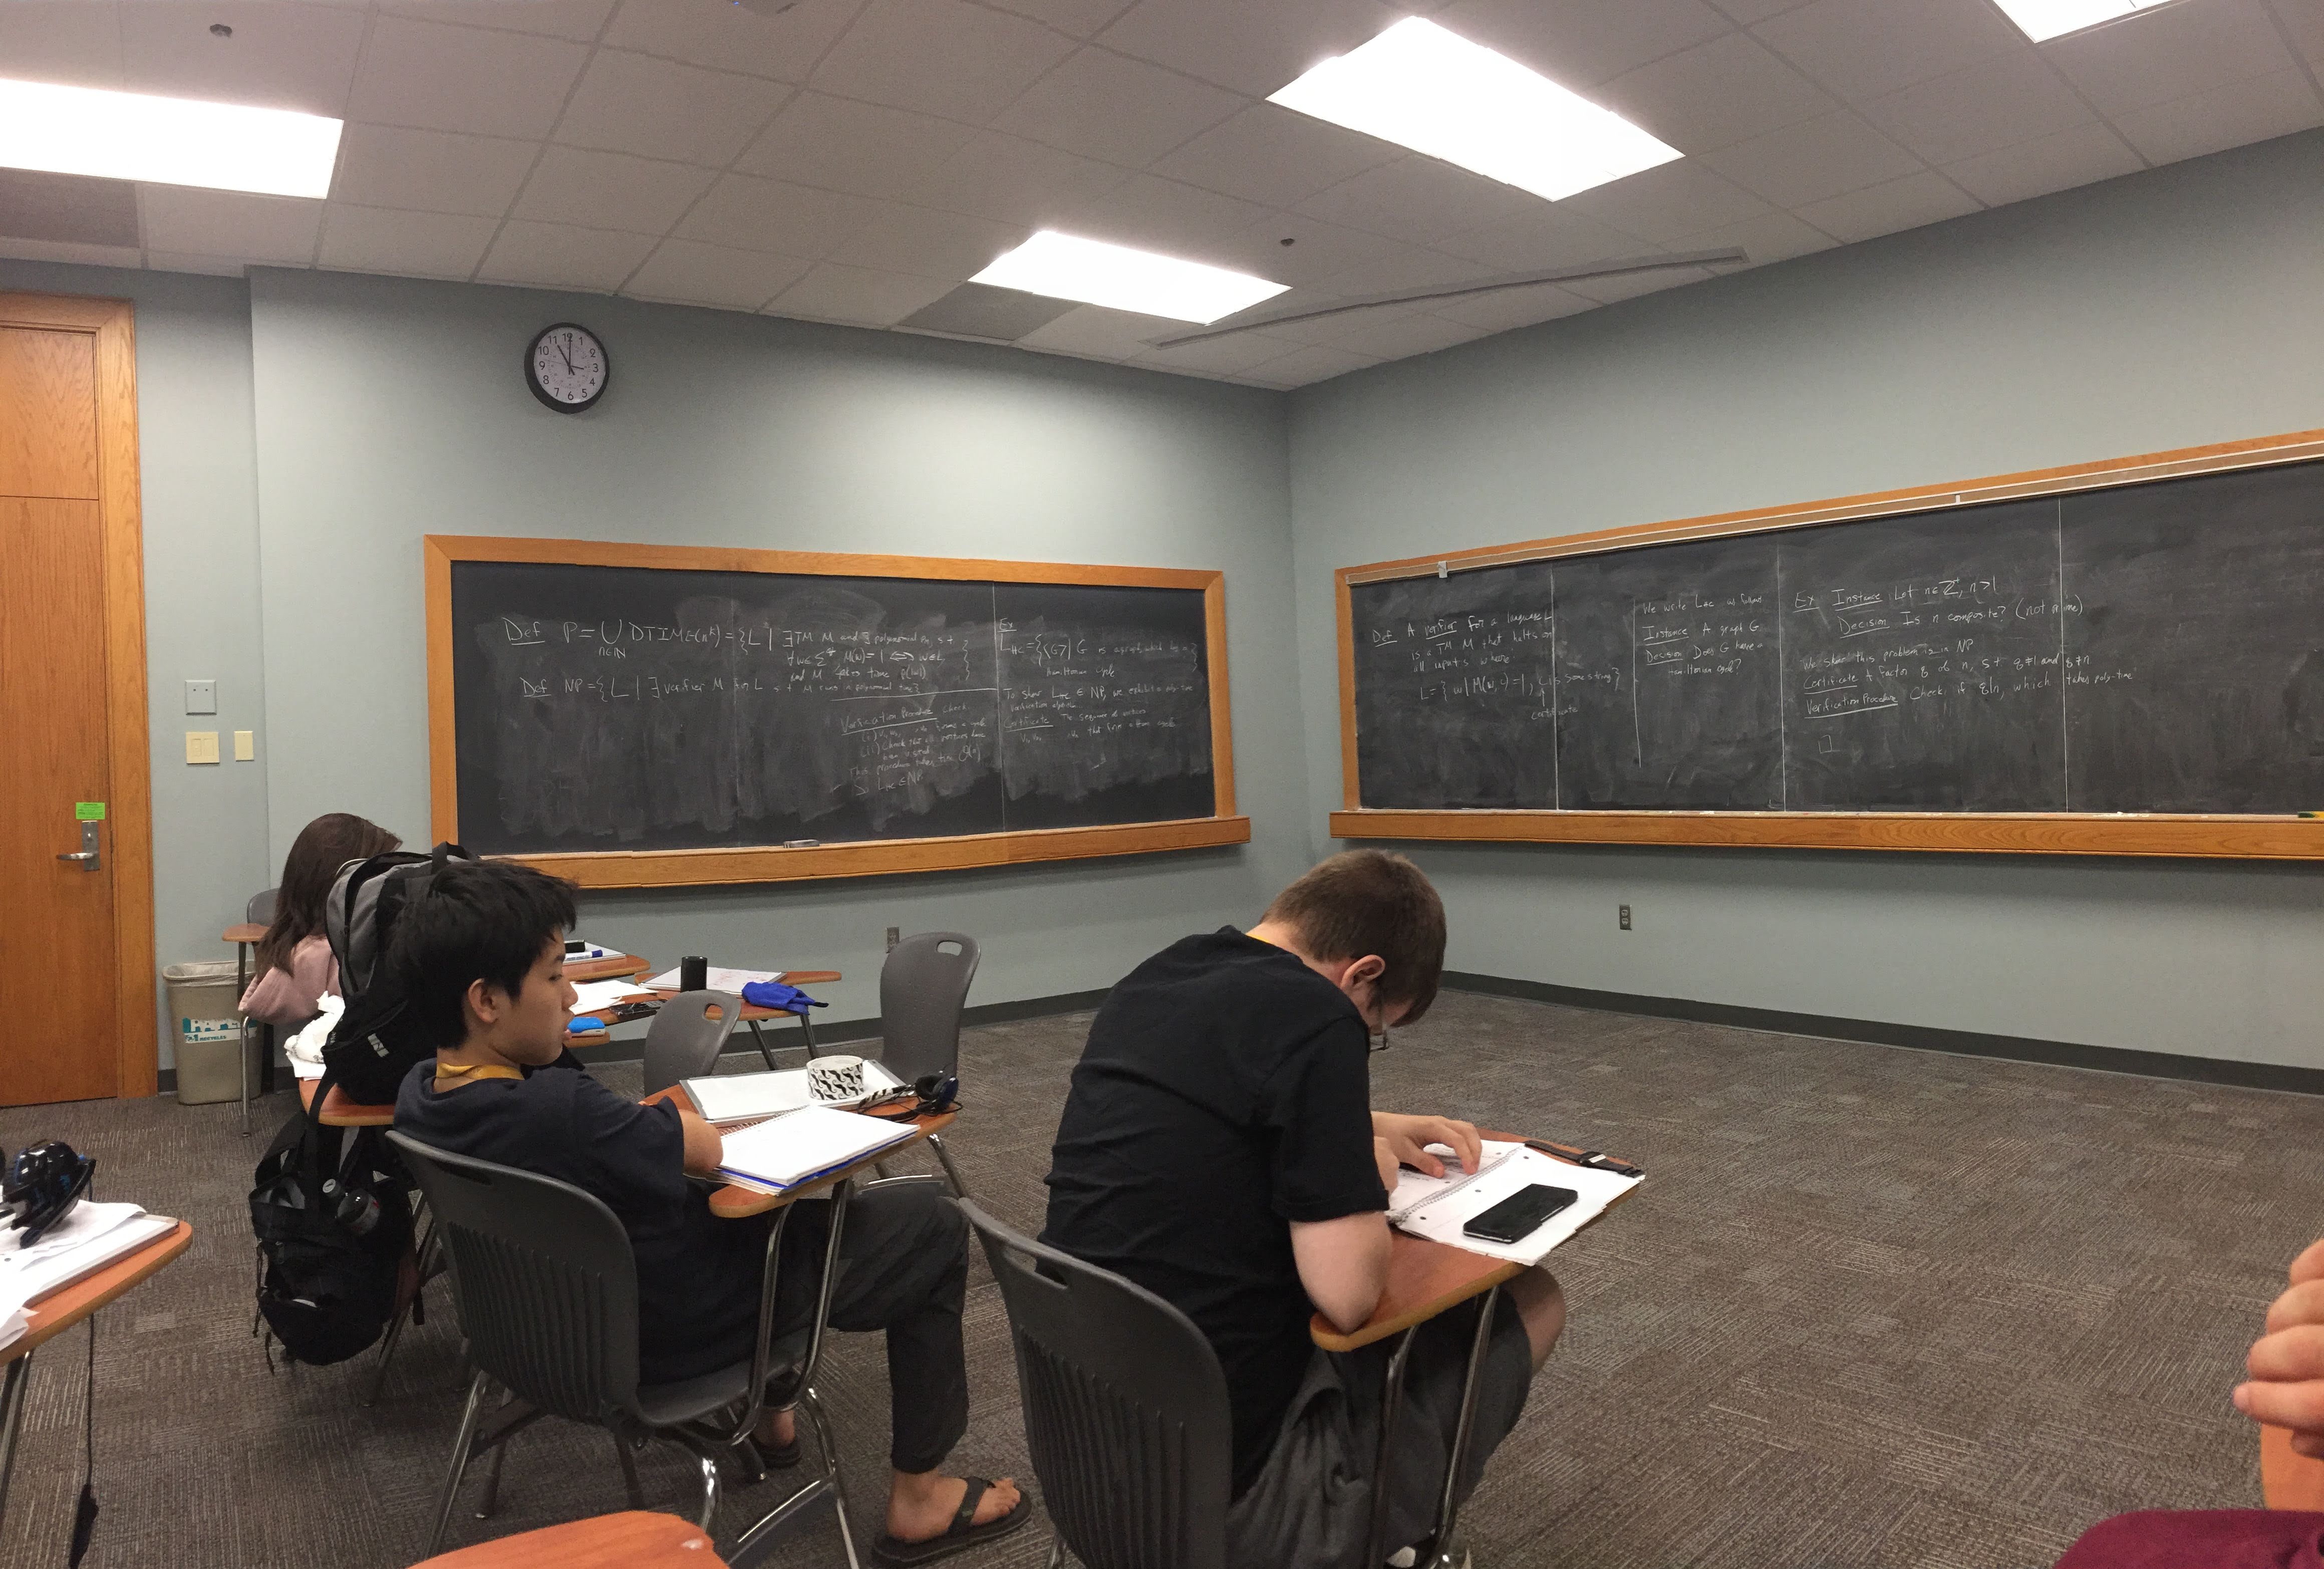 11 12 1
10 2
9 3
8 4
7 6 5
Def P = ⋃ DTIME(n^k) = {L | ∃ TM M and polynomial p, s.t.
n∈ℕ
∀w∈Σ* M(w)=1 ⟺ w∈L
and M halts in time p(|w|)}
Def NP = {L | ∃ verifier M for L s.t. M runs in polynomial time}
Verification Procedure Check
(i) v₁, v₂, ... forms a cycle
(ii) Check that all vertices have
been visited
This procedure takes time O(n)
So L_HC ∈ NP
Ex
L_HC = {⟨G⟩ | G is a graph which has a
Hamiltonian cycle}
To show L_HC ∈ NP, we exhibit a poly-time
verification
Certificate The sequence of vertices
that form a Ham cycle
Def A verifier for a language L
is a TM M that halts on
all inputs where
L = {w | M(w, c) = 1, c is some string}
certificate
We write L_HC as follows
Instance A graph G
Decision Does G have a
Hamiltonian cycle?
Ex Instance Let n∈ℤ⁺, n>1
Decision Is n composite? (not prime)
We show this problem is in NP
Certificate A factor q of n, s.t. q≠1 and q≠n
Verification Procedure Check if q|n, which takes poly-time